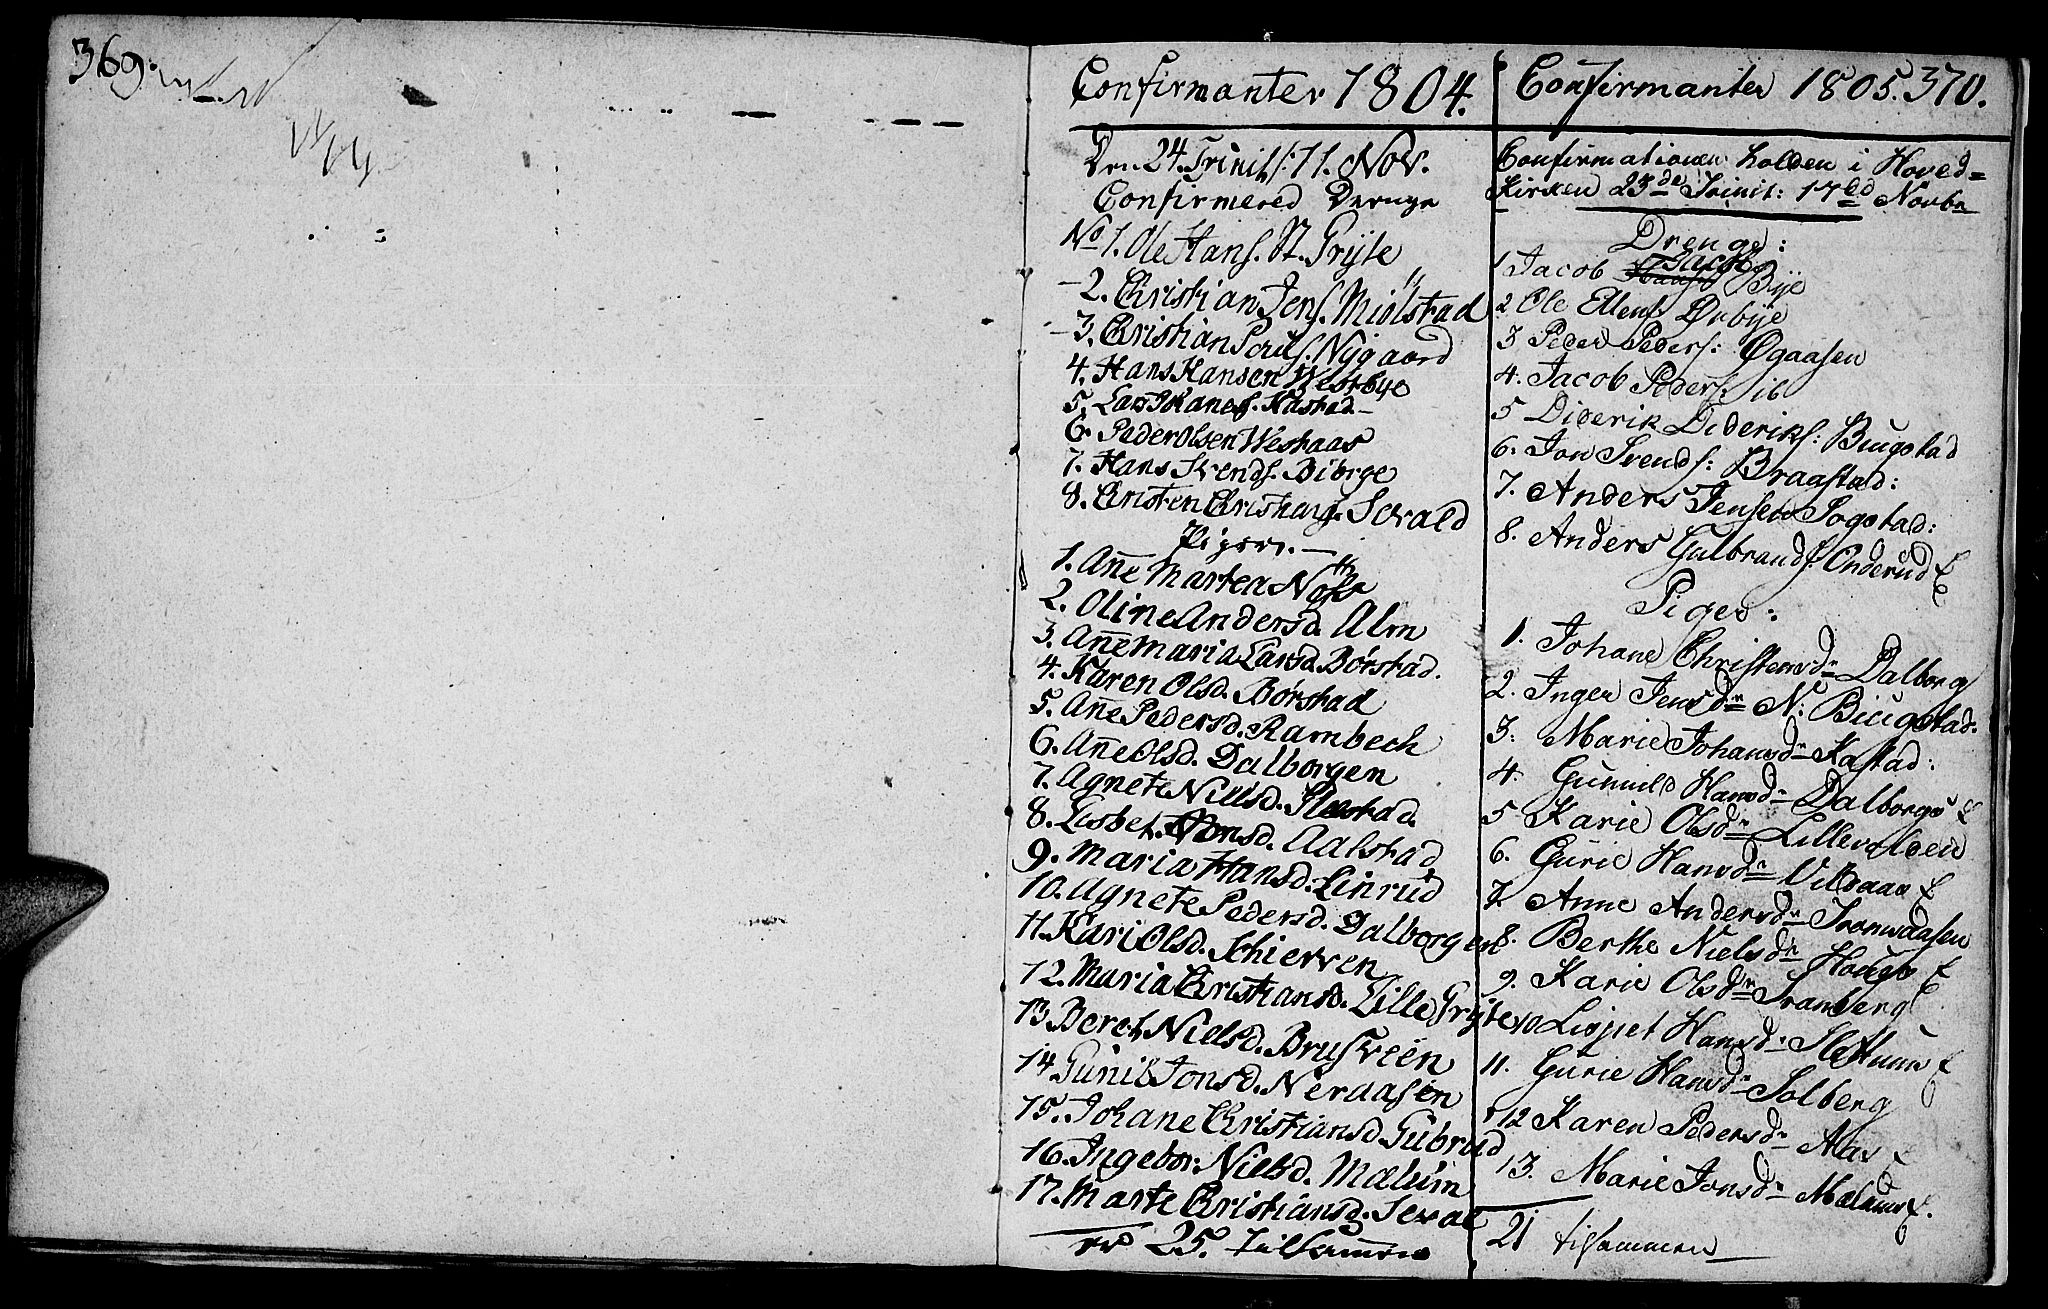 369.
Confirmanter 1804.
Den 24. Trinit/: 11. Nov.
Confirmered Drenge
No 1. Ole Hans. St. Gryte
2. Christian Jens. Miølstad
3. Christian Pouls. Nygaard
4. Hans Hansen Westbye
5. Lars Johanes. Kastad
6. Peder Olsen Westaas
7. Hans Svends. Biørge
8. Christen Christians. Sevald
Piger.
1. Ane Martea Nøss
2. Oline Andersd. Alm
3. Ane Maria Larsd. Børstad.
4. Karen Olsd. Børstad
5. Ane Pedersd. Rambech
6. Ane Olsd. Dalborgen
7. Agnete Nielsd.
8. Lisbet Aalstad
9. Maria Hansd. Linrud
10. Agnete Pedersd. Dalborgen
11. Kari Olsd. Schierven
12. Maria Christiansd. Lille Gryte
13. Beret Nielsd. Brusveen
14. Gunild Jonsd. Neraasen
15. Johane Christiansd. Gubrud
16. Ingebor: Nielsd. Mælum
17. Marte Christiansd. Seval
er 25. tilsammen
Confirmanter 1805. 370.
Confirmationen holden i Hoved=
Kirken 23de Trinit: 17ed Novbr
Drenge:
1 Jacob Jacobs Bÿe
2 Ole Ellens Ørbÿe
3 Peder Peders: Øgaasen
4. Jacob Peders: ib
5 Diderik Dideriks: Biugstad
6. Jon Svends: Braastad:
7. Anders Jensen Sogstad:
8. Anders Gulbrands: Onderud E
Piger:
1. Johane Christensdr Dalborg
2. Inger Jensdr N: Biugstad.
3. Marie Johansdr Kastad:
4. Gunild Hansdr Dalborgs E
5 Karie Olsdr Lillevolden
6. Gurie Hansdr Vildaas E
7. Anne Andersdr Tromsdasen
8. Berthe Nielsdr Houg E
9. Karie Olsdr Tranberg
10 Lispet Hansdr Slettum E
11. Gurie Hansdr Solberg
12 Karen Pedersdr Aas E
13. Marie Jonsdr Mælums E.
21 tilsammen